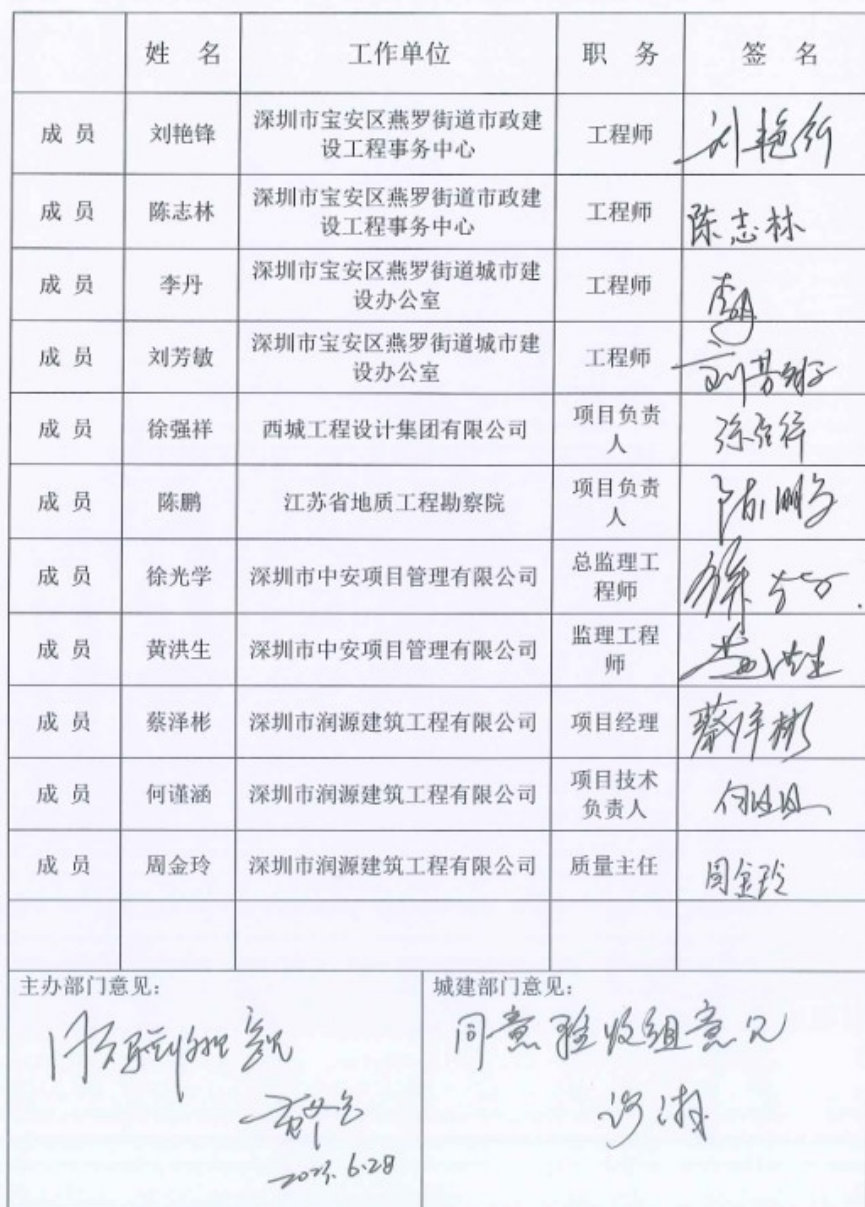 姓 名 工作单位 职 务 签 名
成 员 刘艳锋 深圳市宝安区燕罗街道市政建 工程师 刘艳锋
设工程事务中心
成 员 陈志林 深圳市宝安区燕罗街道市政建 工程师 陈志林
设工程事务中心
成 员 李丹 深圳市宝安区燕罗街道城市建 工程师 李丹
设办公室
成 员 刘芳敏 深圳市宝安区燕罗街道城市建 工程师 刘芳敏
设办公室
成 员 徐强祥 西城工程设计集团有限公司 项目负责 徐强祥
人
成 员 陈鹏 江苏省地质工程勘察院 项目负责 陈鹏
人
成 员 徐光学 深圳市中安项目管理有限公司 总监理工 徐光学
程师
成 员 黄洪生 深圳市中安项目管理有限公司 监理工程 黄洪生
师
成 员 蔡泽彬 深圳市润源建筑工程有限公司 项目经理 蔡泽彬
成 员 何谨涵 深圳市润源建筑工程有限公司 项目技术
负责人
成 员 周金玲 深圳市润源建筑工程有限公司 质量主任 周金玲
主办部门意见: 城建部门意见:
同意验收组意见